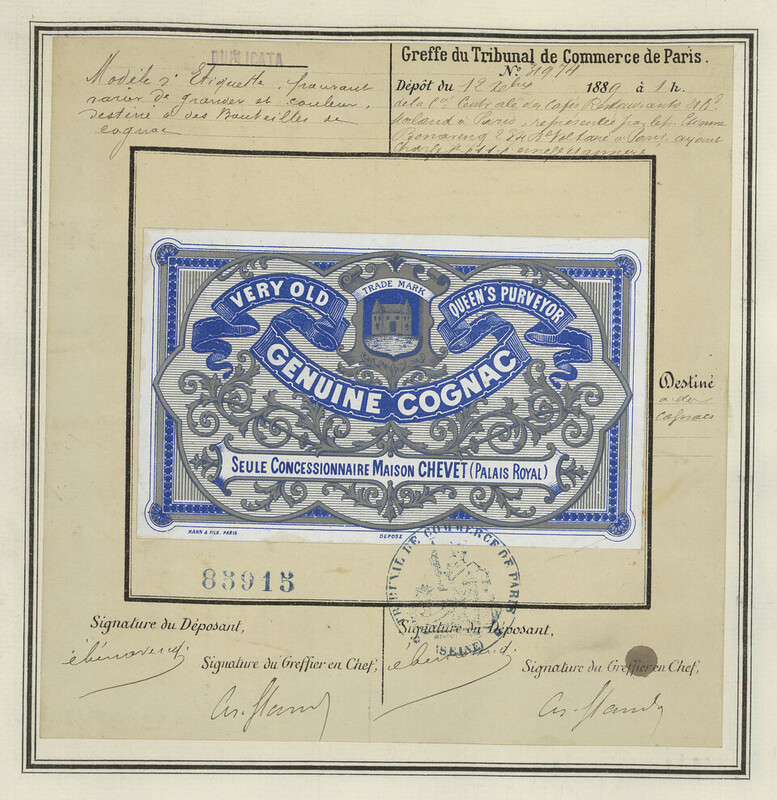 DUPLICATA
Modèle d'Etiquette, pouvant
varier de grandeur et couleur,
destiné à des Bouteilles de
cognac
Greffe du Tribunal de Commerce de Paris.
N° 31974
Dépôt du 12 Xbre 1889 à 1 h.
de la Cie Centrale des Cafés Restaurants
à Paris, représentée par
à Paris, ayant
VERY OLD
TRADE MARK
QUEEN'S PURVEYOR
GENUINE COGNAC
SEULE CONCESSIONNAIRE MAISON CHEVET (PALAIS ROYAL)
KAHN & FILS. PARIS
DEPOSE
Destiné
à des
cognacs
83915
TRIBUNAL DE COMMERCE DE PARIS
(SEINE)
Signature du Déposant,
Signature du Greffier en Chef,
Signature du Déposant,
Signature du Greffier en Chef,